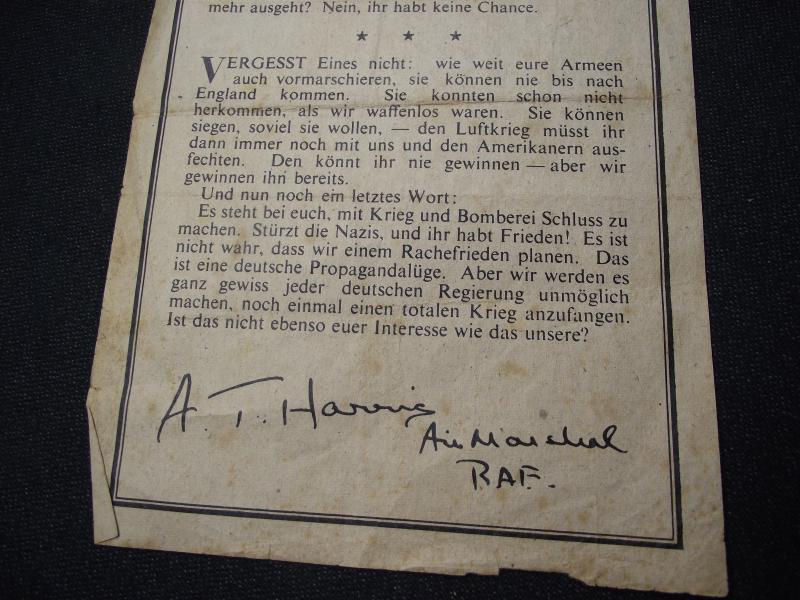 mehr ausgeht? Nein, ihr habt keine Chance.
★ ★ ★
VERGESST Eines nicht: wie weit eure Armeen
auch vormarschieren, sie können nie bis nach
England kommen. Sie konnten schon nicht
herkommen, als wir waffenlos waren. Sie können
siegen, soviel sie wollen, — den Luftkrieg müsst ihr
dann immer noch mit uns und den Amerikanern aus-
fechten. Den könnt ihr nie gewinnen — aber wir
gewinnen ihn bereits.
Und nun noch ein letztes Wort:
Es steht bei euch, mit Krieg und Bomberei Schluss zu
machen. Stürzt die Nazis, und ihr habt Frieden! Es ist
nicht wahr, dass wir einem Rachefrieden planen. Das
ist eine deutsche Propagandalüge. Aber wir werden es
ganz gewiss jeder deutschen Regierung unmöglich
machen, noch einmal einen totalen Krieg anzufangen.
Ist das nicht ebenso euer Interesse wie das unsere?
A. T. Harris
Air Marshal
RAF.